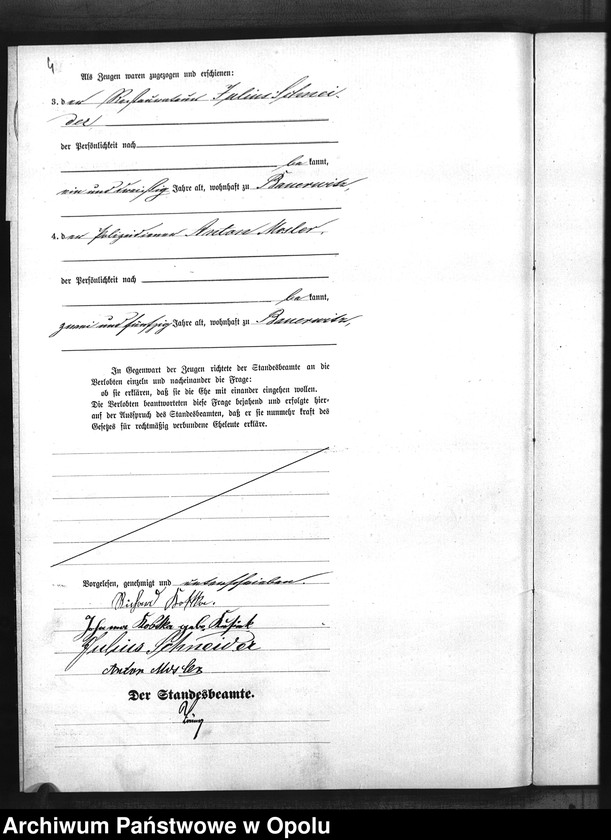 4
Als Zeugen waren zugezogen und erschienen:
3. der Restaurateur Julius Schnei-
der,
der Persönlichkeit nach
be kannt,
ein und dreißig Jahre alt, wohnhaft zu Bauerwitz,
4. der Polizeidiener Anton Mosler,
der Persönlichkeit nach
be kannt,
zwei und fünfzig Jahre alt, wohnhaft zu Bauerwitz,
In Gegenwart der Zeugen richtete der Standesbeamte an die
Verlobten einzeln und nacheinander die Frage:
ob sie erklären, daß sie die Ehe mit einander eingehen wollen.
Die Verlobten beantworteten diese Frage bejahend und erfolgte hier-
auf der Ausspruch des Standesbeamten, daß er sie nunmehr kraft des
Gesetzes für rechtmäßig verbundene Eheleute erkläre.
Vorgelesen, genehmigt und unterschrieben.
Richard Kostka.
Kostka geb.
Julius Schneider
Anton Mosler
Der Standesbeamte.
Archiwum Państwowe w Opolu